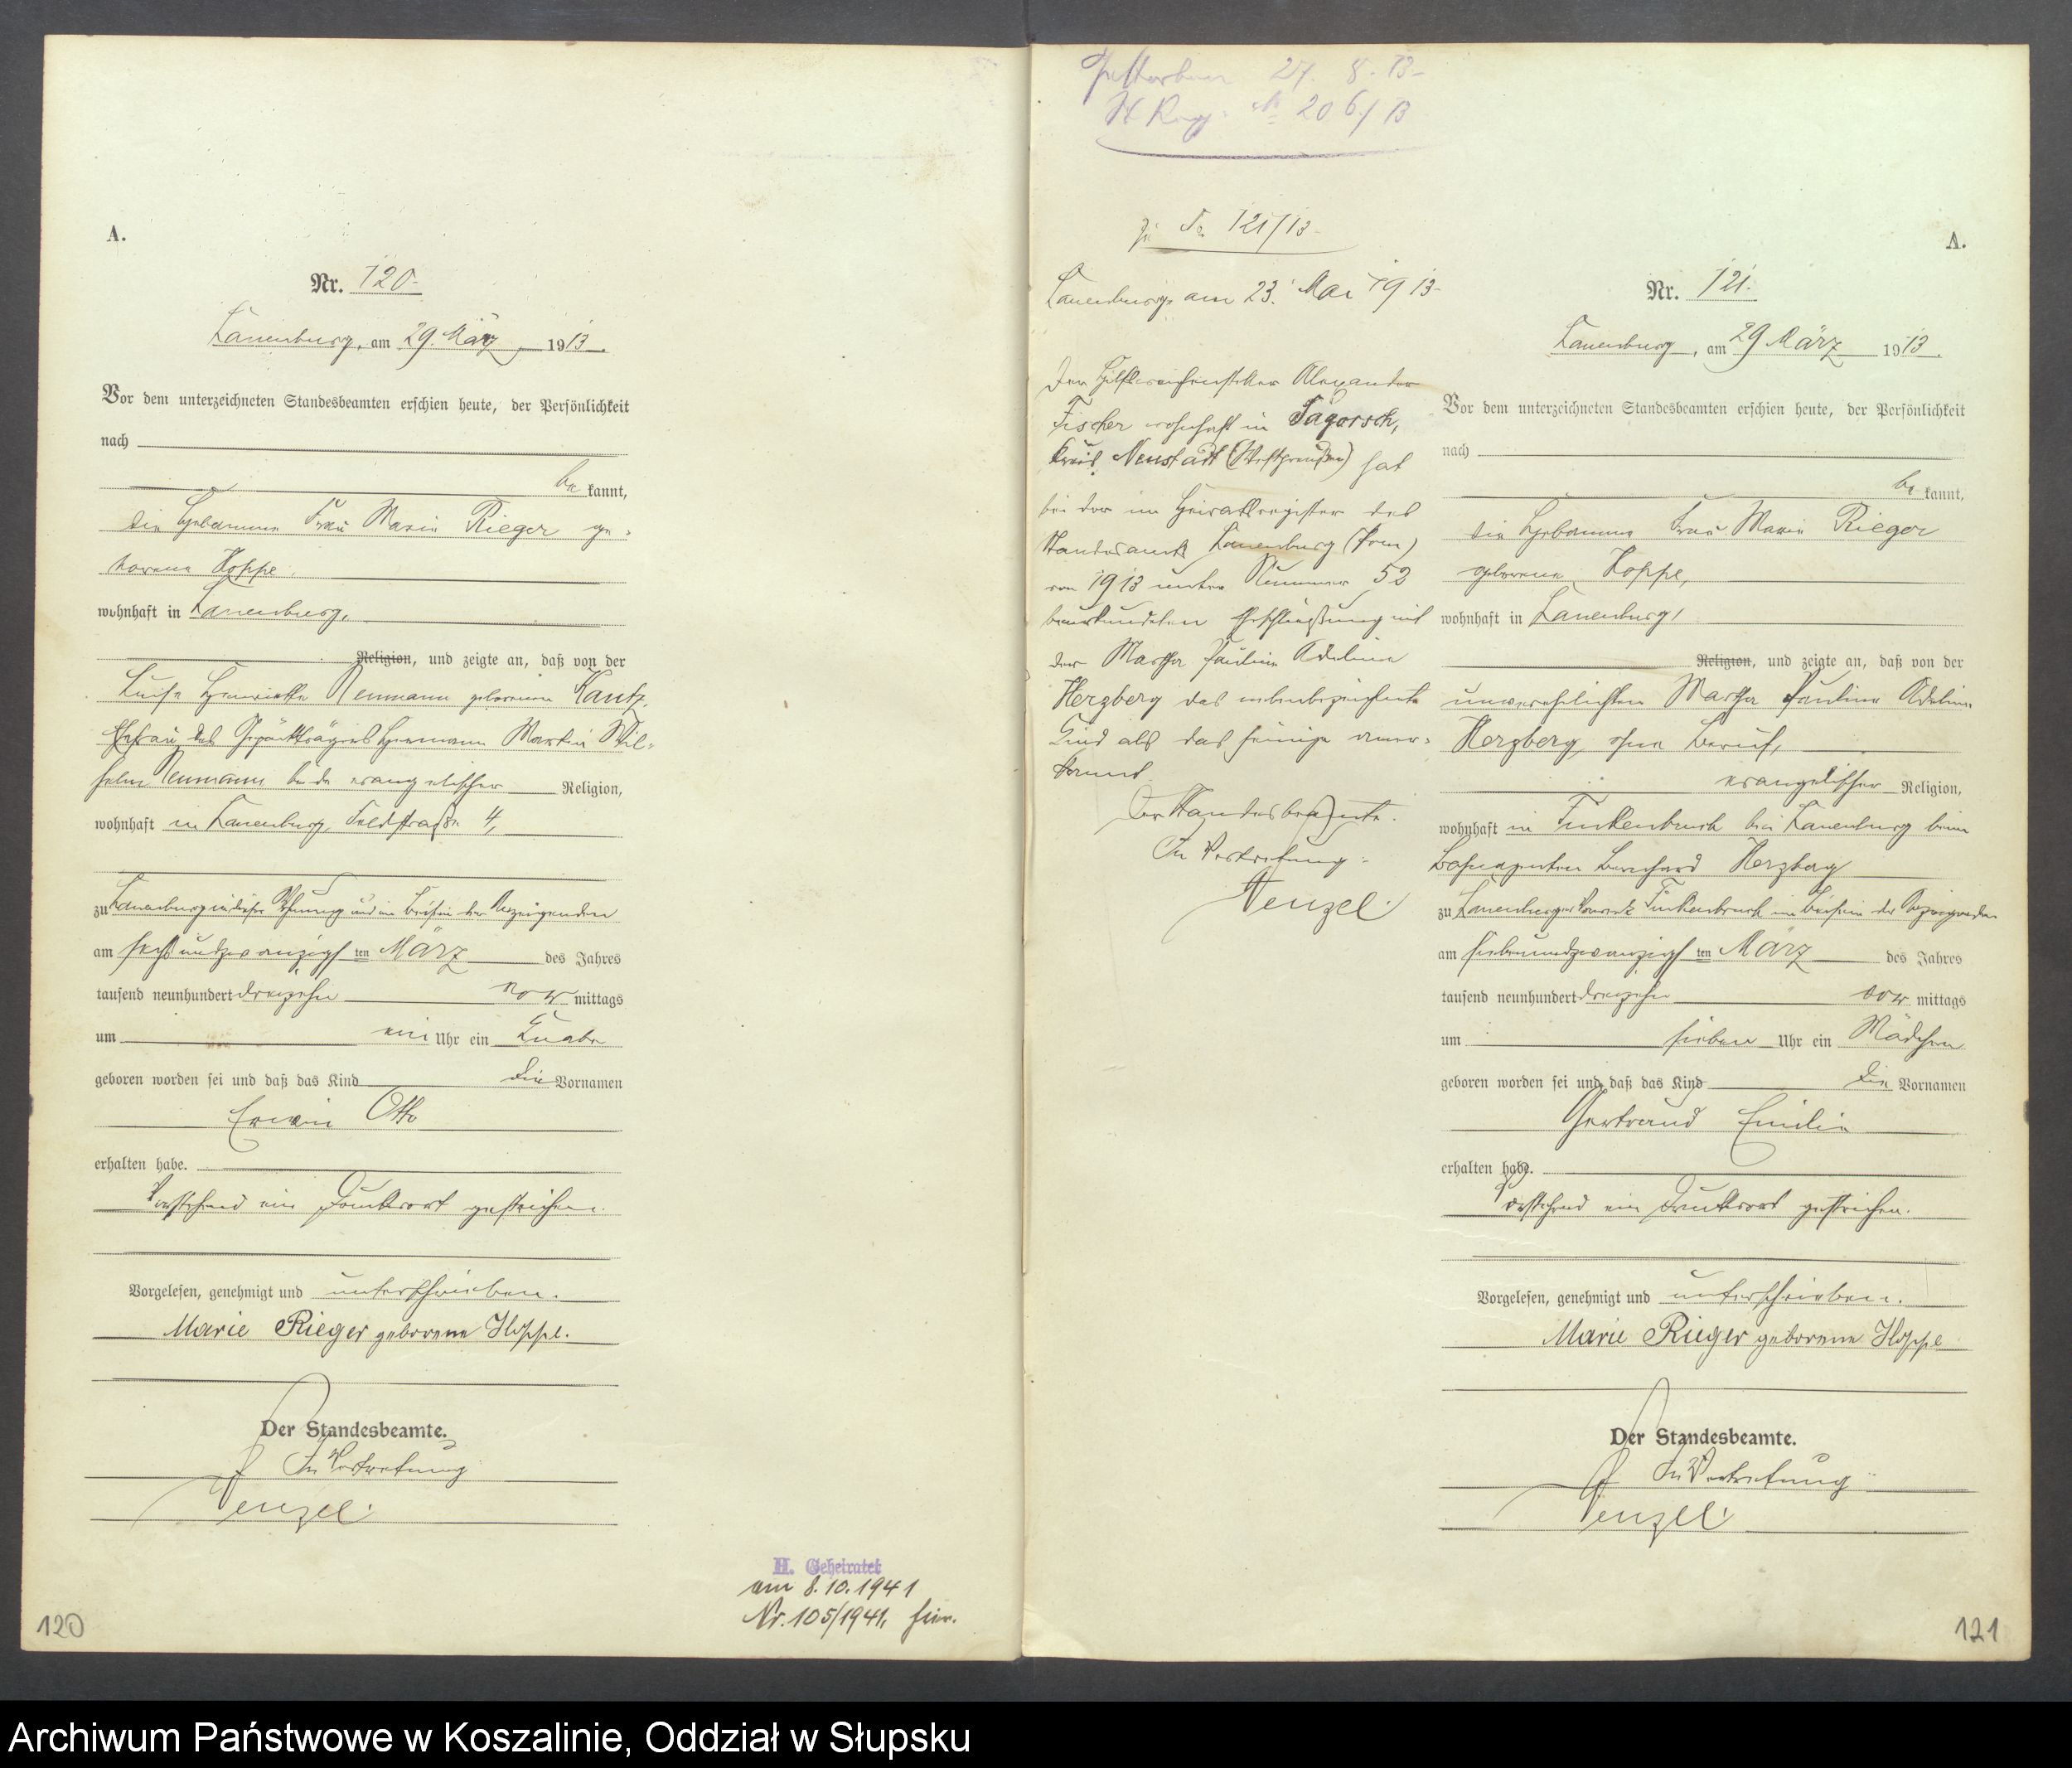 A.
Nr. 120.
Lauenburg, am 29. März 1913.
Vor dem unterzeichneten Standesbeamten erschien heute, der Persönlichkeit
nach
be kannt,
die Hebamme Frau Marie Rieger ge-
borene Hoppe,
wohnhaft in Lauenburg,
Religion, und zeigte an, daß von der
Luise Henriette Neumann geborenen Kautz,
Ehefrau des Gepäckträgers Hermann Martin Wil-
helm Neumann, beide evangelischer Religion,
wohnhaft in Lauenburg, Feldstraße 4,
zu Lauenburg in dieser Wohnung und im Beisein der Anzeigenden
am sechsundzwanzigsten März des Jahres
tausend neunhundert dreizehn vor mittags
um ein Uhr ein Knabe
geboren worden sei und daß das Kind die Vornamen
Erwin Otto
erhalten habe.
Vorstehend ein Druckwort gestrichen.
Vorgelesen, genehmigt und unterschrieben.
Marie Rieger geborene Hoppe.
Der Standesbeamte.
In Vertretung
Wenzel.
H. Geheiratet
am 8.10.1941
Nr. 105/1941, hier.
120
Gestorben 27. 8. 13
St. Reg. № 206/13
zu No 121/13
Lauenburg, am 23. Mai 1913
Der Hilfsweichensteller Alexander
Fischer wohnhaft in Sagorsch,
Kreis Neustadt (Westpreußen) hat
bei der im Heiratsregister des
Standesamts Lauenburg (Pom)
von 1913 unter Nummer 52
beurkundeten Eheschließung mit
der Martha Pauline Adeline
Herzberg das nebenbezeichnete
Kind als das seinige aner-
kannt.
Der Standesbeamte.
In Vertretung:
Wenzel.
A.
Nr. 121.
Lauenburg, am 29 März 1913.
Vor dem unterzeichneten Standesbeamten erschien heute, der Persönlichkeit
nach
be kannt,
die Hebamme Frau Marie Rieger
geborene Hoppe,
wohnhaft in Lauenburg,
Religion, und zeigte an, daß von der
unverehelichten Martha Pauline Adeline
Herzberg, ohne Beruf,
evangelischer Religion,
wohnhaft in Finkenbruch bei Lauenburg beim
Bernhard Herzberg
zu Lauenburger Vorwerk Finkenbruch im Beisein der Anzeigenden
am siebenundzwanzigsten März des Jahres
tausend neunhundert dreizehn vor mittags
um sieben Uhr ein Mädchen
geboren worden sei und daß das Kind die Vornamen
Gertraud Emilie
erhalten habe.
Vorstehend ein Druckwort gestrichen.
Vorgelesen, genehmigt und unterschrieben.
Marie Rieger geborene Hoppe
Der Standesbeamte.
In Vertretung
Wenzel.
121
Archiwum Państwowe w Koszalinie, Oddział w Słupsku